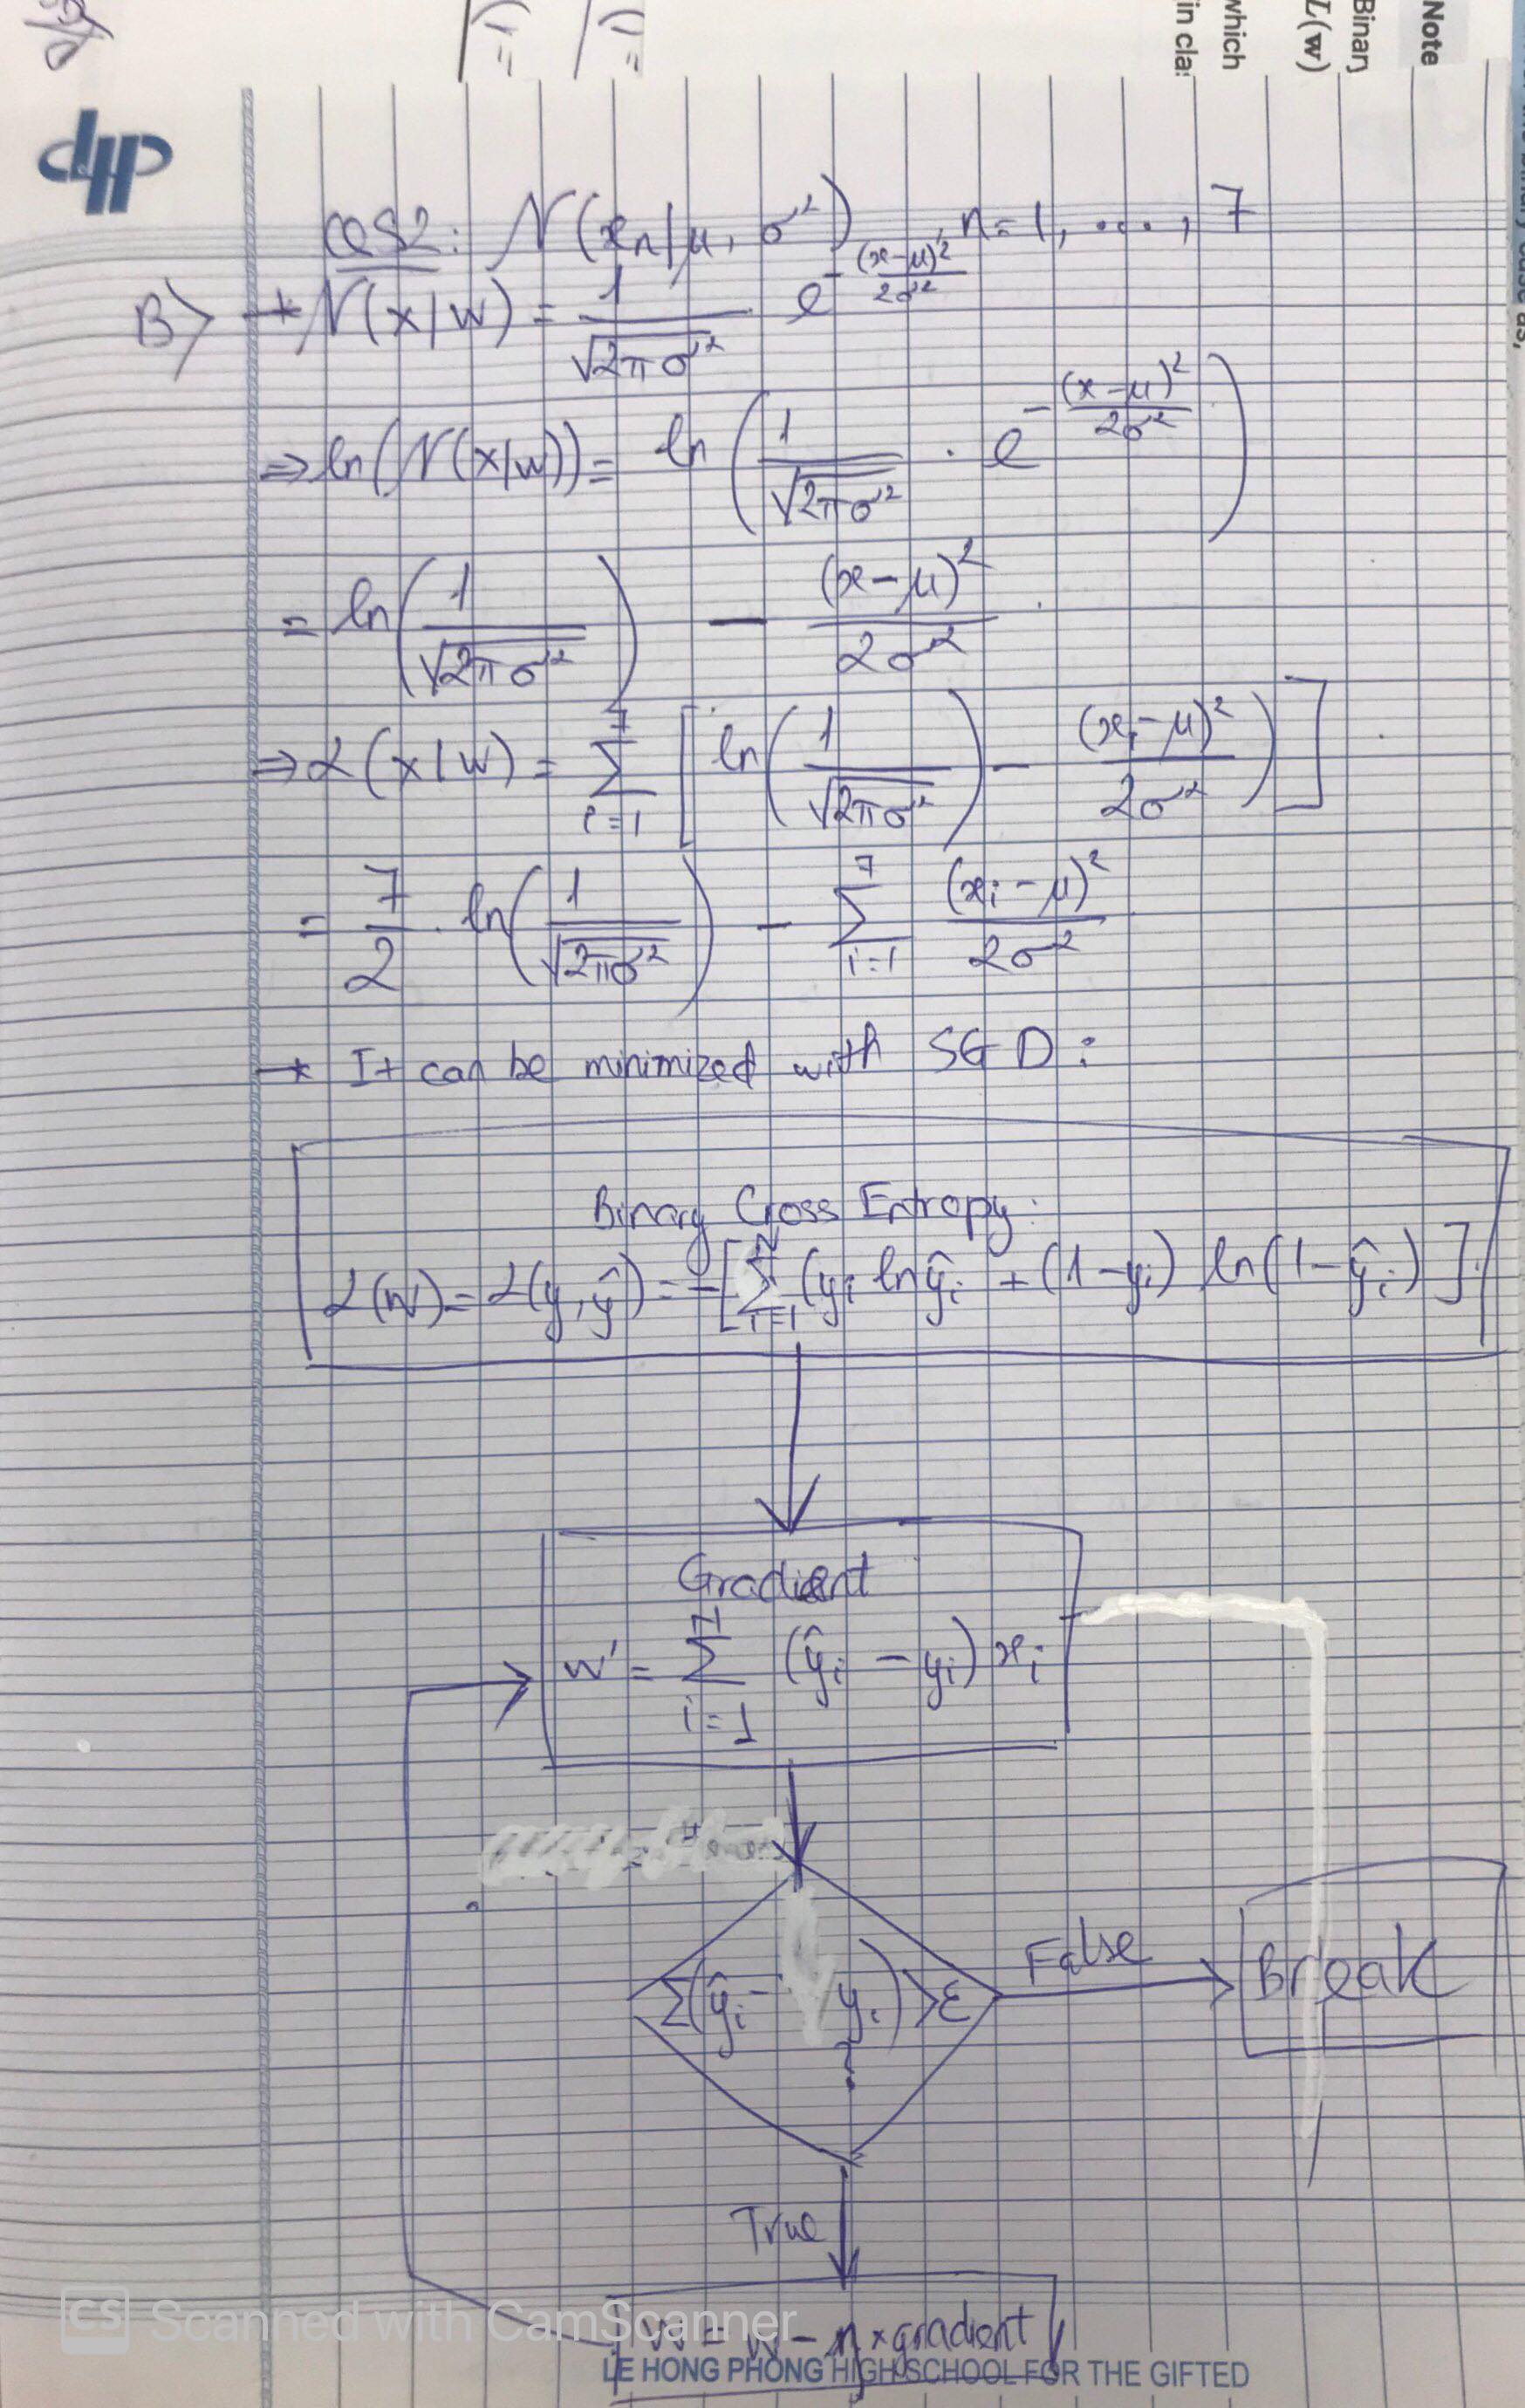 Note
Binary
L(w)
which
in cla
dHP
Cas2: N(xn|μ, σ²), n=1, ..., 7
B) → N(x|w) = 1/√(2πσ²) e^(-(x-μ)²/(2σ²))
⇒ ln(N(x|w)) = ln(1/√(2πσ²) · e^(-(x-μ)²/(2σ²)))
= ln(1/√(2πσ²)) - (x-μ)²/(2σ²)
⇒ L(x|w) = Σ_{i=1}^{7} [ln(1/√(2πσ²)) - (xi-μ)²/(2σ²))]
= 7/2 · ln(1/√(2πσ²)) - Σ_{i=1}^{7} (xi-μ)²/(2σ²)
→ It can be minimized with SGD:
Binary Cross Entropy:
L(w) = L(y,ŷ) = -[Σ_{i=1}^{N} (yi ln ŷi + (1-yi) ln(1-ŷi)]
Gradient
w' = Σ_{i=1}^{N} (ŷi - yi) xi
Σ(ŷi - yi) > ε
?
False
Break
True
w = w - η × gradient
CS Scanned with CamScanner
LE HONG PHONG HIGH SCHOOL FOR THE GIFTED